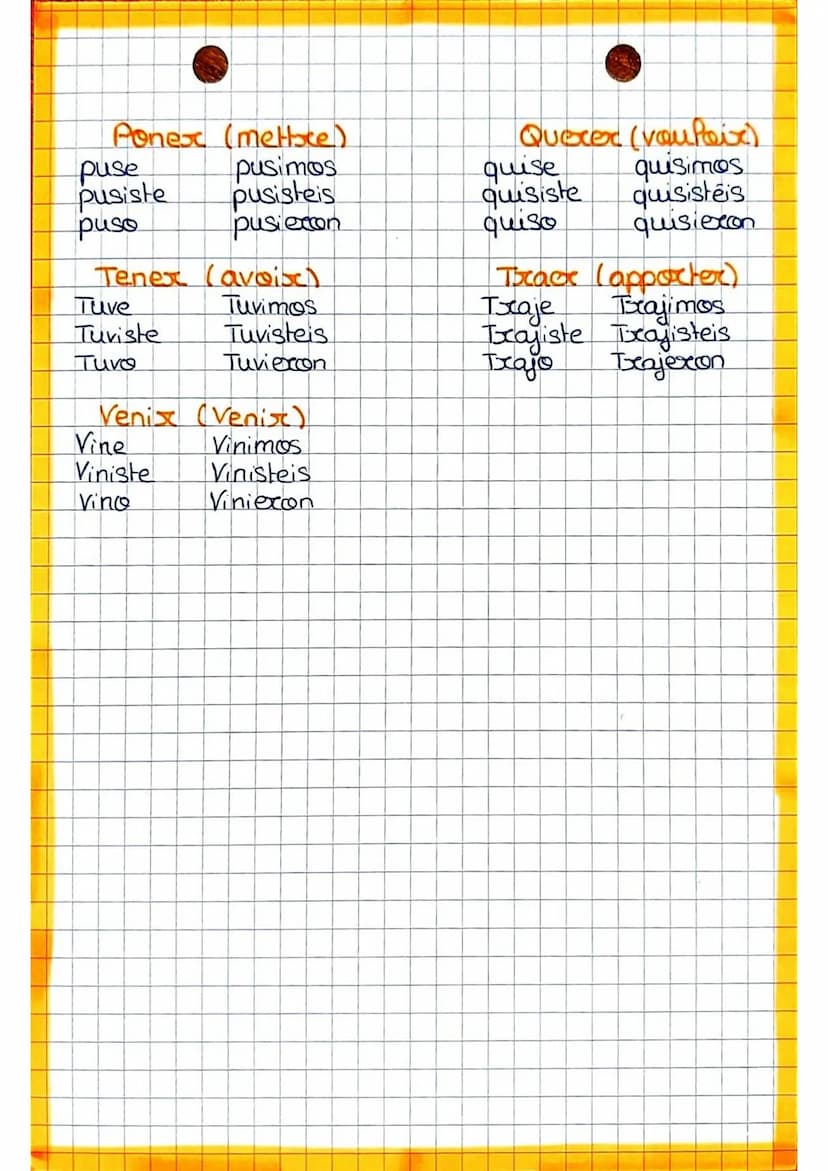 Poner (mettre)
puse pusimos
pusiste pusisteis
puso pusieron
Querer (vouloir)
quise quisimos
quisiste quisistéis
quiso quisieron
Tener (avoir)
Tuve Tuvimos
Tuviste Tuvisteis
Tuvo Tuvieron
Traer (apporter)
Traje Trajimos
Trajiste Trajisteis
Trajo Trajeron
Venir (Venir)
Vine Vinimos
Viniste Vinisteis
Vino Vinieron